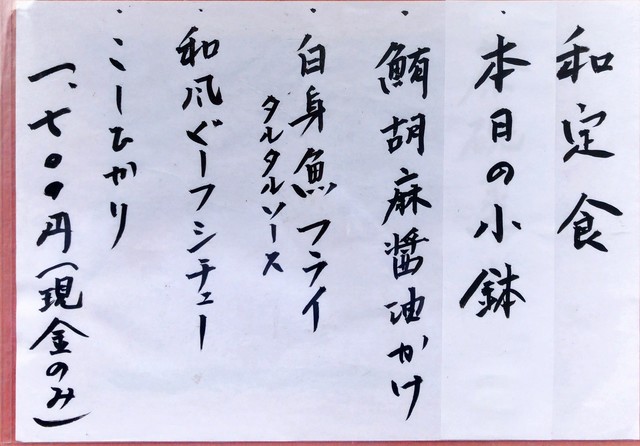 和定食
・本日の小鉢
・鮪胡麻醤油かけ
・白身魚フライ
タルタルソース
・和風ビーフシチュー
・こしひかり
一、七〇〇円(現金のみ)